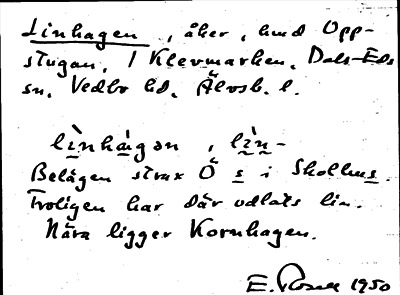 Linhagen, åker, hmd Opp-
stugan, / Klevmarken, Dals-Eds
sn, Vedbo hd, Älvsb. l.
lìnhàgən, lìn-
Belägen strax Ö s i Skolhus.
Troligen har där odlats lin.
Nära ligger Kornhagen.
E. Rosell 1950